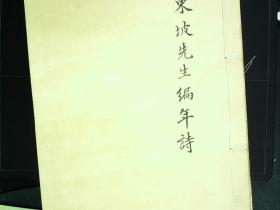 東坡先生編年詩